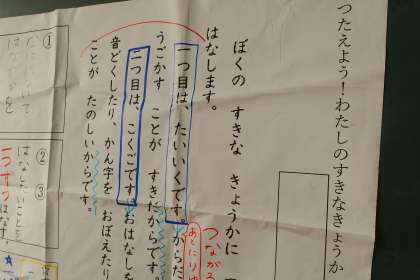 つたえよう！わたしのすきなきょうか
ぼくの　すきな　きょうかに
はなします。
一つ目は、たいいくです。からだ
うごかす　ことが　すきだからです。
二つ目は、こくごです。おはなしを
音どくしたり、かん字を　おぼえたり
ことが　たのしいからです。
つながる
あとにりゆ
①
②
③
はなしたいことを
一つずつはなす。